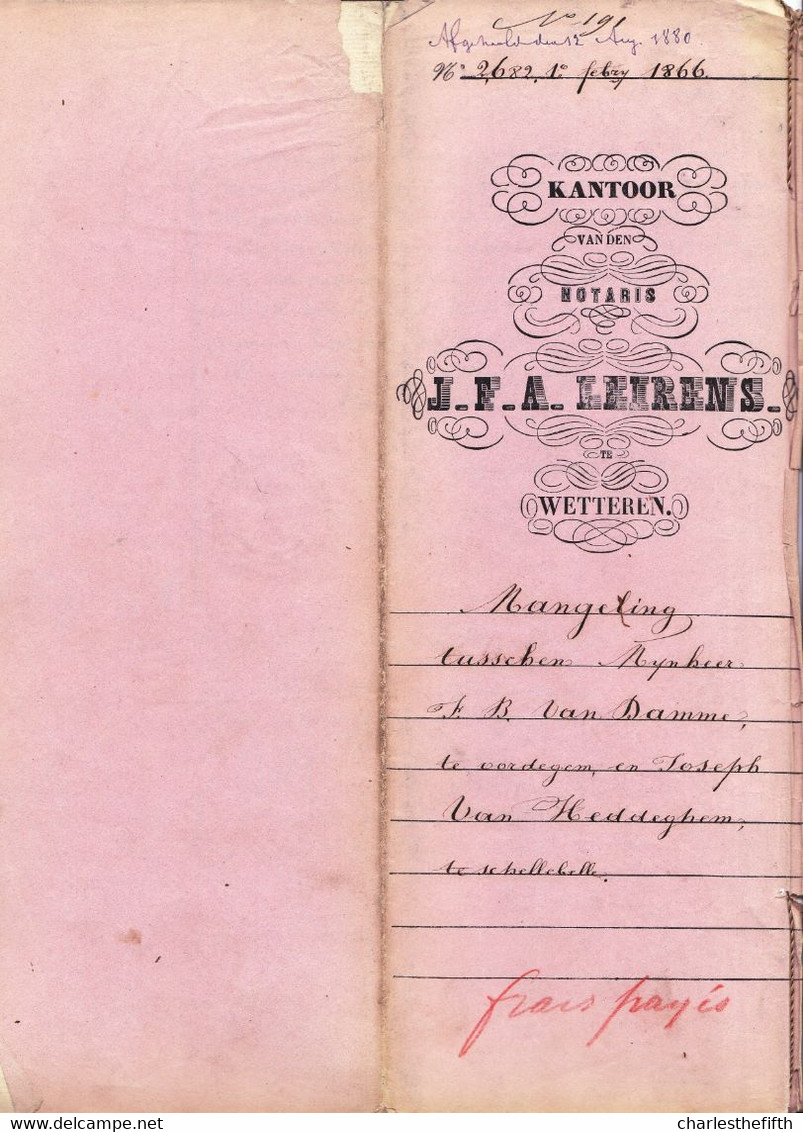 No 191
Afgehaald den 12 Aug. 1880.
No 2,682, 1o febry 1866.
KANTOOR
VAN DEN
NOTARIS
J. F. A. LEIRENS.
TE
WETTEREN.
Mangeling
tusschen Mynheer
F. B. Van Damme,
te oordegem, en Joseph
Van Heddeghem,
te schellebelle.
frais payés
delcampe.net
charlesthefifth